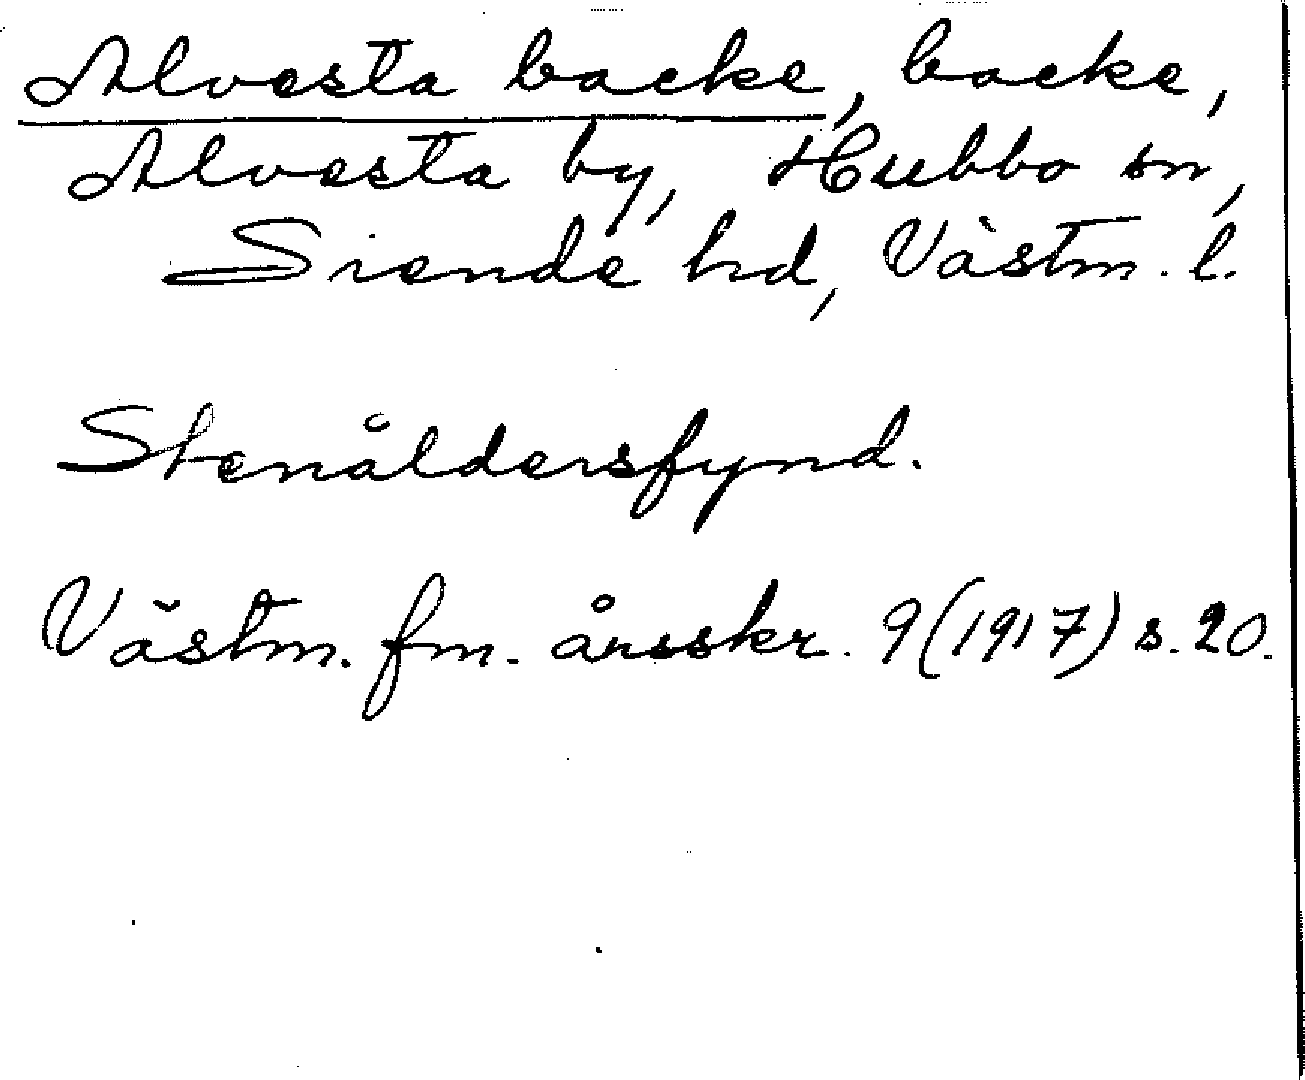 Alvesta backe, backe,
Alvesta by, Hubbo sn,
Siende hd, Västm. l.
Stenåldersfynd.
Västm. fm. årsskr. 9(1917) s. 20.